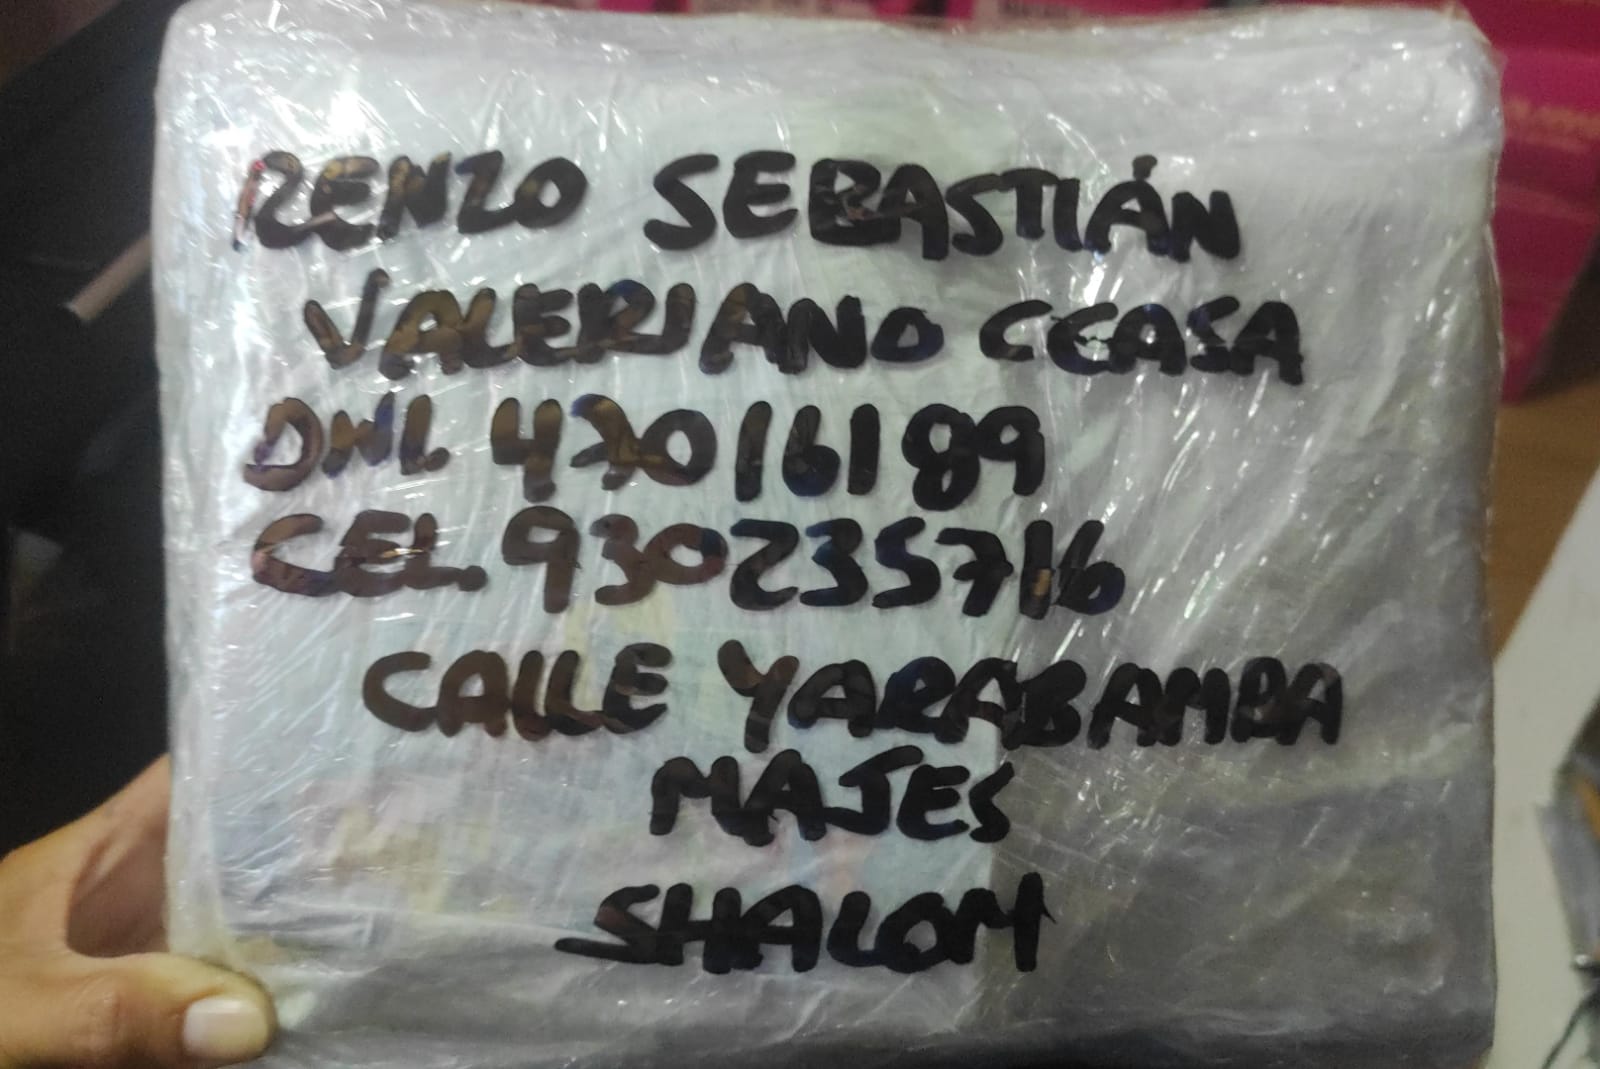 RENZO SEBASTIÁN
VALERIANO CCASA
DNI. 47016189
CEL. 930235716
CALLE YARABAMBA
MAJES
SHALOM